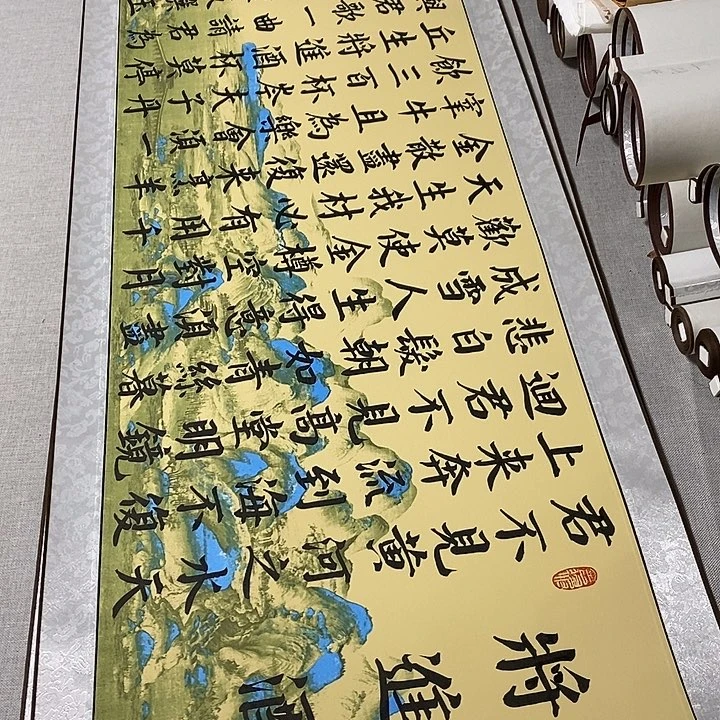 將進酒
君不見黃河之水天
上来奔流到海不復
迴君不見高堂明鏡
悲白髮朝如青絲暮
成雪人生得意須盡
歡莫使金樽空對月
天生我材必有用千
金散盡還復来烹羊
宰牛且為樂會須一
飲三百杯岑夫子丹
丘生將進酒杯莫停
與君歌一曲請君為